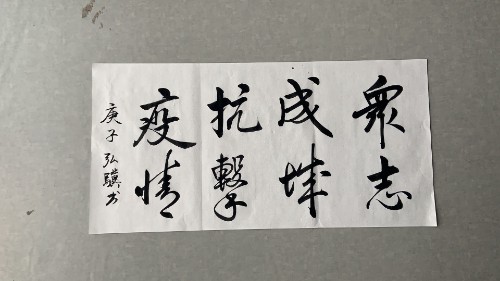 眾志
成城
抗擊
疫情
庚子 弘驥书